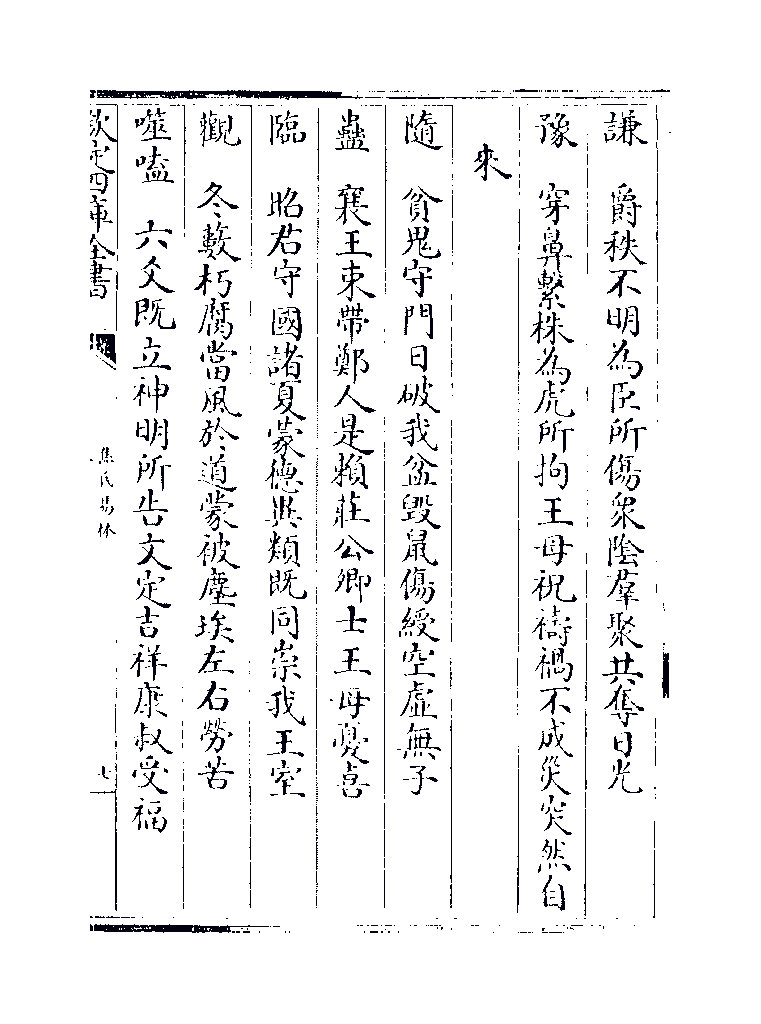 謙　爵秩不明為臣所傷衆陰羣聚共奪日光
豫　穿鼻繫株為虎所拘王母祝禱禍不成災突然自
來
隨　貧鬼守門日破我盆毀鼠傷綬空虛無子
蠱　襄王束帶鄭人是賴莊公卿士王母憂喜
臨　昭君守國諸夏蒙德異類既同崇我王室
觀　冬藪朽腐當風於道蒙被塵埃左右勞苦
噬嗑　六爻既立神明所告文定吉祥康叔受福
欽定四庫全書
焦氏易林
七